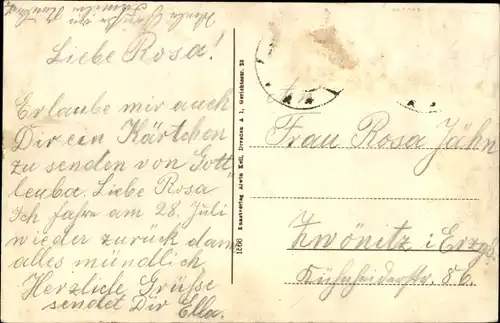 Liebe Rosa!
Erlaube mir auch
Dir ein Kärtchen
zu senden von Gott
leuba. Liebe Rosa
Ich fahre am 28. Juli
wieder zurück dann
alles mündlich
Herzliche Grüße
sendet Dir Ella.
1866 Kunstverlag Alwin Keil, Dresden A 1, Gerichtsstr. 23
Frau Rosa Jähn
Zwönitz i. Erzgb.
86.